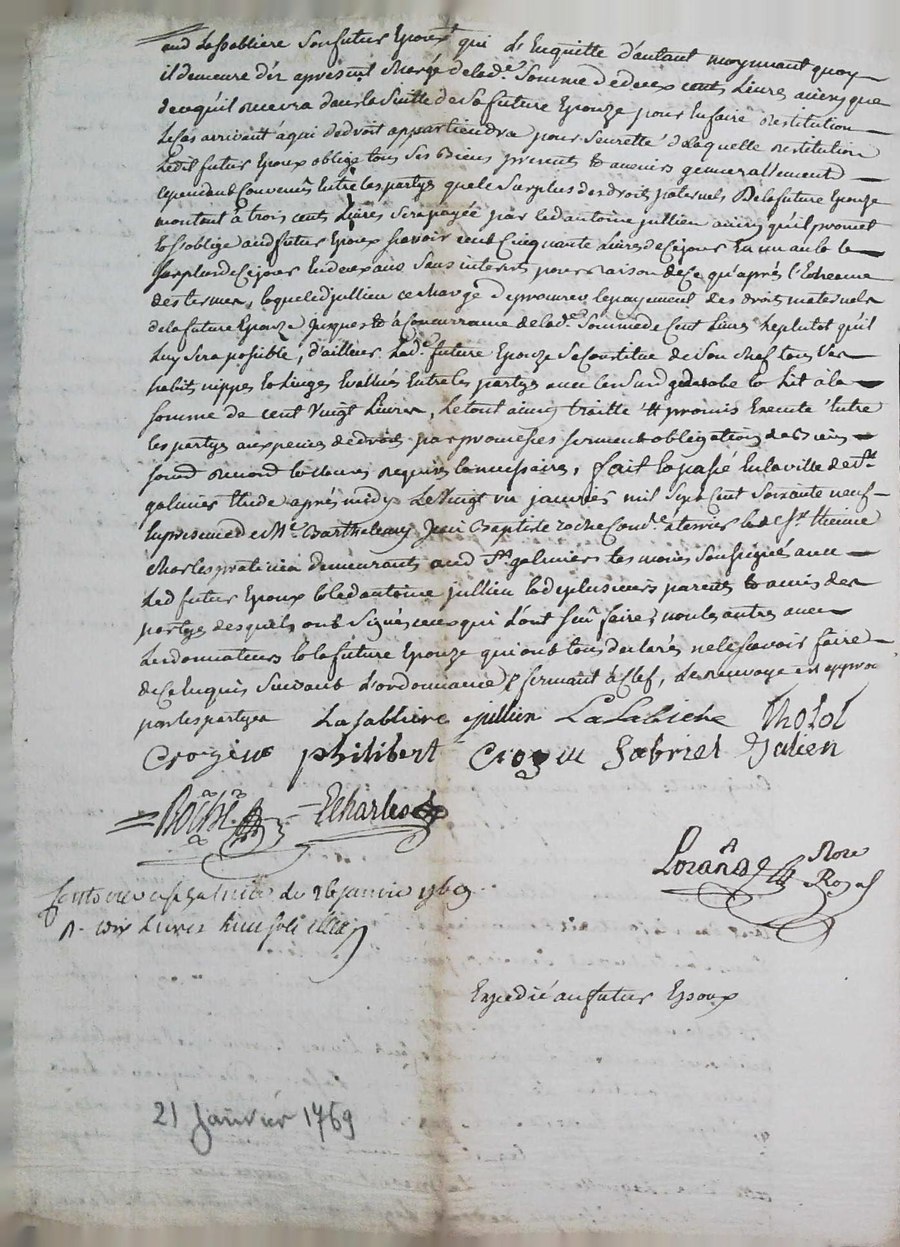 aud Lassabliere son futur Epoux qui L'Enquitte d'autant moyennant quoy
il demeure d'ors apresent chargé delad.e Somme dedeux cents Livres ainsy que
de cequ'il recevra dans la Suitte de sa future Epouze pour En faire restitution
le cas arrivant a qui de droit appartiendra pour seureté de laquelle restitution
Ledit futur Epoux oblige tous ses Biens presents & avenirs generallement
cependant Convenus Entre les partyes que le Surplus des droits paternels De la future Epouze
montant à trois cents Livres sera payée par led antoine jullien ainsy qu'il promet
& s'oblige aud futur Epoux savoir cent Cinquante Livres de Cejour En un an & le
surplus de Cejour En deux ans Sans interets pour raison de Ce qu'après l'Echeance
des termes, lequel led jullien ce charge De procurer le payement des droits maternels
de la future Epouze jusques & à Concurrance de lad.e Somme de Cent Livres le plutot qu'il
Luy sera possible, d'ailleurs Lad.e future Epouze Se Constitue de Son chef tous Ses
habits nippes & Linges Evalués Entre les partyes avec Garderobe & Lit à la
somme de cent Vingt Livres, Le tout ainsy traitté & promis Executé Entre
les partyes aux peines de droit par promesses serment obligations de Biens
requises & necessaires, fait & passé En la ville de St
galmier Etude après midy Le Vingt un janvier mil Sept Cent Soixante neuf
En presence de Me Barthelemy Jean Baptiste roche & de Sr Etienne
Charles praticien demeurants aud St galmier temoins Soussignés avec
Led futur Epoux & led antoine jullien & plusieurs parents & amis des
partyes desquels ont Signés ceux qui L'ont Sçu faire, non les autres avec
Les donnateurs & la future Epouze qui ont tous declarés ne le savoir faire
de ce Enquis Suivant L'ordonnance le renvoye est approuvé
par les partyes Lasabliere jullien La Labiche Tholol
Crozier philibert Crozier Gabriel Julien
Roche Echarles
Lorange Nore
Royal
galmier le 26 janvier 1769
Livres
Expedié au futur Epoux
21 Janvier 1769